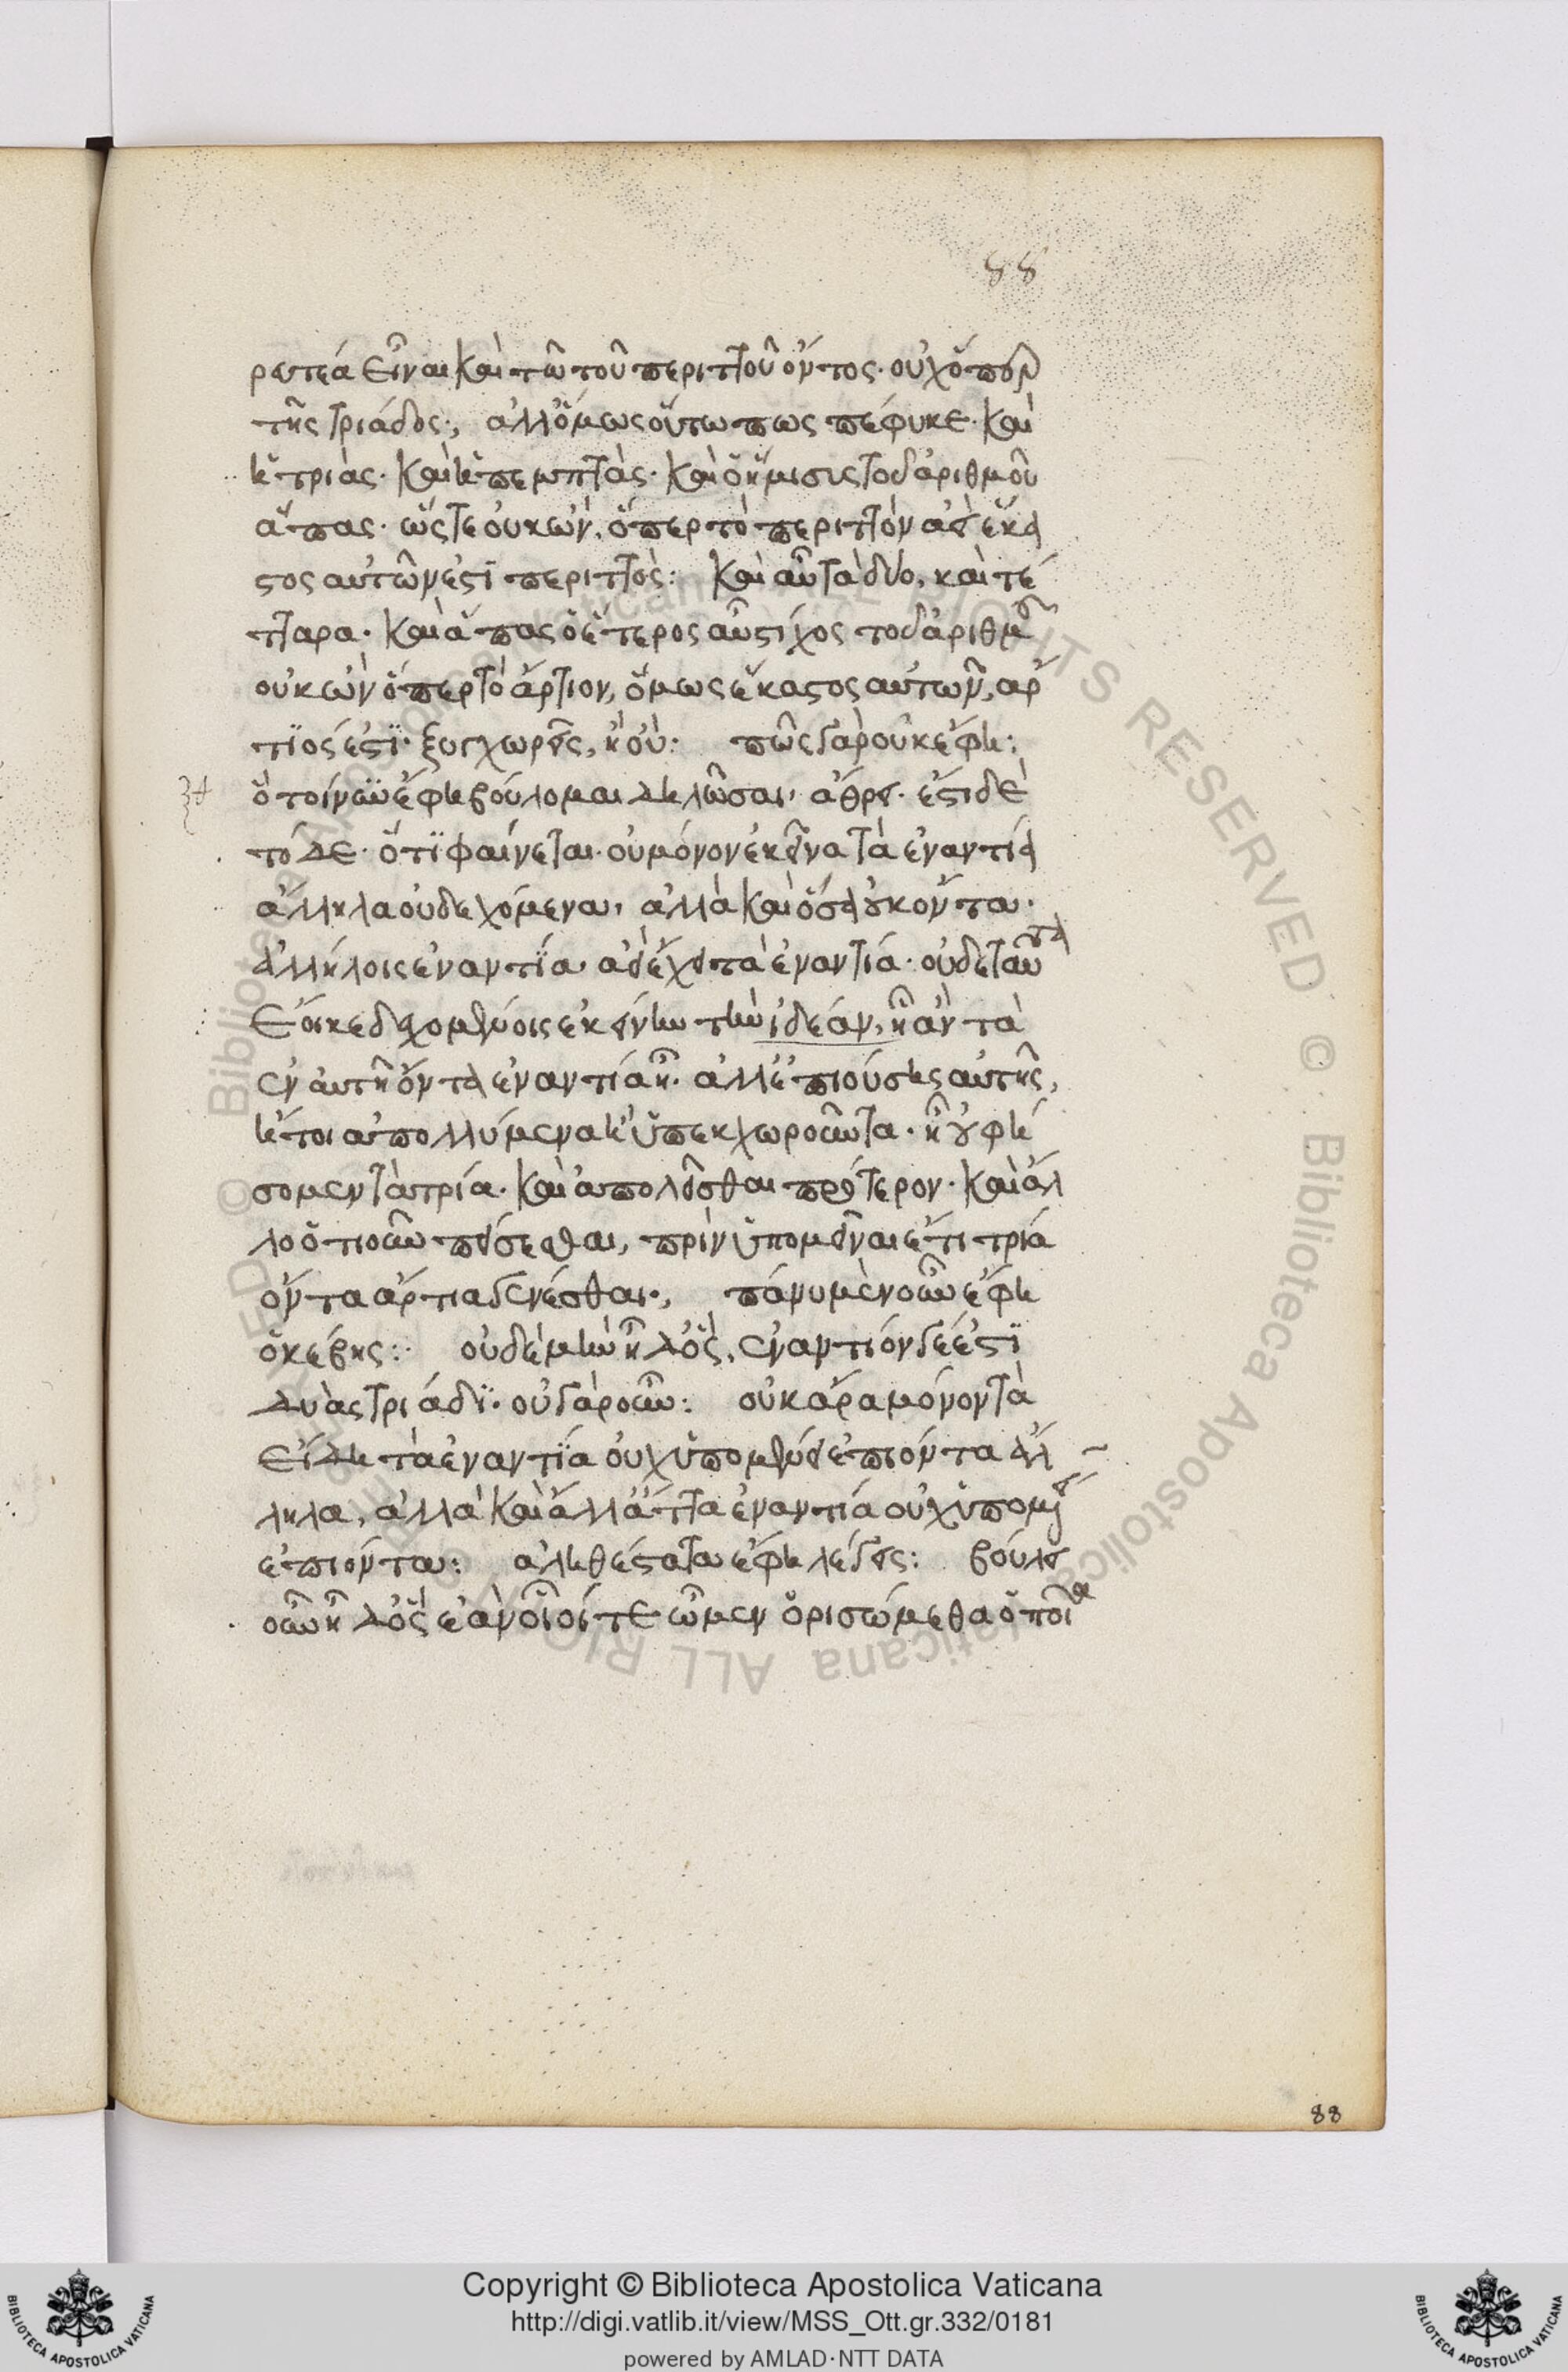 88
ρευτέα εἶναι καὶ τῶ τοῦ περιττοῦ ὄντος· οὐχ ὅπερ
τῆς τριάδος·, ἀλλ' ὅμως οὕτω πως πέφυκε· καὶ
ἡ τριὰς· καὶ ἡ πεμπτὰς· καὶ ὁ ἥμισυς τοῦ ἀριθμοῦ
ἅπας· ὥστε οὐκ ὢν, ὅπερ τὸ περιττόν ἀεὶ ἕκα
στος αὐτῶν ἐστὶ περιττός: καὶ αὖ τὰ δύο, καὶ τέ
τταρα· καὶ ἅπας ὁ ἕτερος αὖ στίχος τοῦ ἀριθμοῦ
οὐκ ὢν ὅπερ τὸ ἄρτιον, ὅμως ἕκαστος αὐτῶν, ἄρ
τιός ἐστι· ξυγχωρεῖς, ἢ οὐ: πῶς γὰρ οὐκ ἔφη:
ὃ τοίνυν ἔφη βούλομαι δηλῶσαι, ἄθρει· ἔστι δὲ
τόδε· ὅτι φαίνεται· οὐ μόνον ἐκεῖνα τὰ ἐναντία
ἄλληλα οὐ δεχόμενα, ἀλλὰ καὶ ὅσα οὐκ ὄντα·
ἀλλήλοις ἐναντία ἀεὶ ἔχει τὰ ἐναντία· οὐδὲ ταῦτα
ἔοικε δεχομένοις ἐκείνην τὴν ἰδέαν, ἣ ἂν τὰ
ἐν αὐτῆ ὄντα ἐναντία ἦ· ἀλλ' ἐπιούσης αὐτῆς,
ἤτοι ἀπολλύμενα ἢ ὑπεκχωροῦντα· ἢ οὐ φή
σομεν τὰ τρία· καὶ ἀπολεῖσθαι πρότερον· καὶ ἄλ
λο ὁτιοῦν πείσεσθαι, πρὶν ὑπομεῖναι ἔτι τρία
ὄντα ἄρτια γενέσθαι·, πάνυ μὲν οὖν ἔφη
ὁ κέβης: οὐδὲ μὴν ἦ δ' ὃς, ἐναντίον γέ ἐστι
δυὰς τριάδι· οὐ γὰρ οὖν: οὐκ ἄρα μόνον τὰ
εἴδη τὰ ἐναντία οὐχ ὑπομένει ἐπιόντα ἄλ
ληλα, ἀλλὰ καὶ ἄλλ' ἄττα ἐναντία οὐχ ὑπομένει
ἐπιόντα: ἀληθέστατα ἔφη λέγεις: βούλει
οὖν ἦ δ' ὃς ἐὰν οἷοί τε ὦμεν ὁρισώμεθα ὁποῖα
88
© Biblioteca Apostolica Vaticana ALL RIGHTS RESERVED
Copyright © Biblioteca Apostolica Vaticana
http://digi.vatlib.it/view/MSS_Ott.gr.332/0181
powered by AMLAD·NTT DATA
BIBLIOTECA APOSTOLICA VATICANA
BIBLIOTECA APOSTOLICA VATICANA